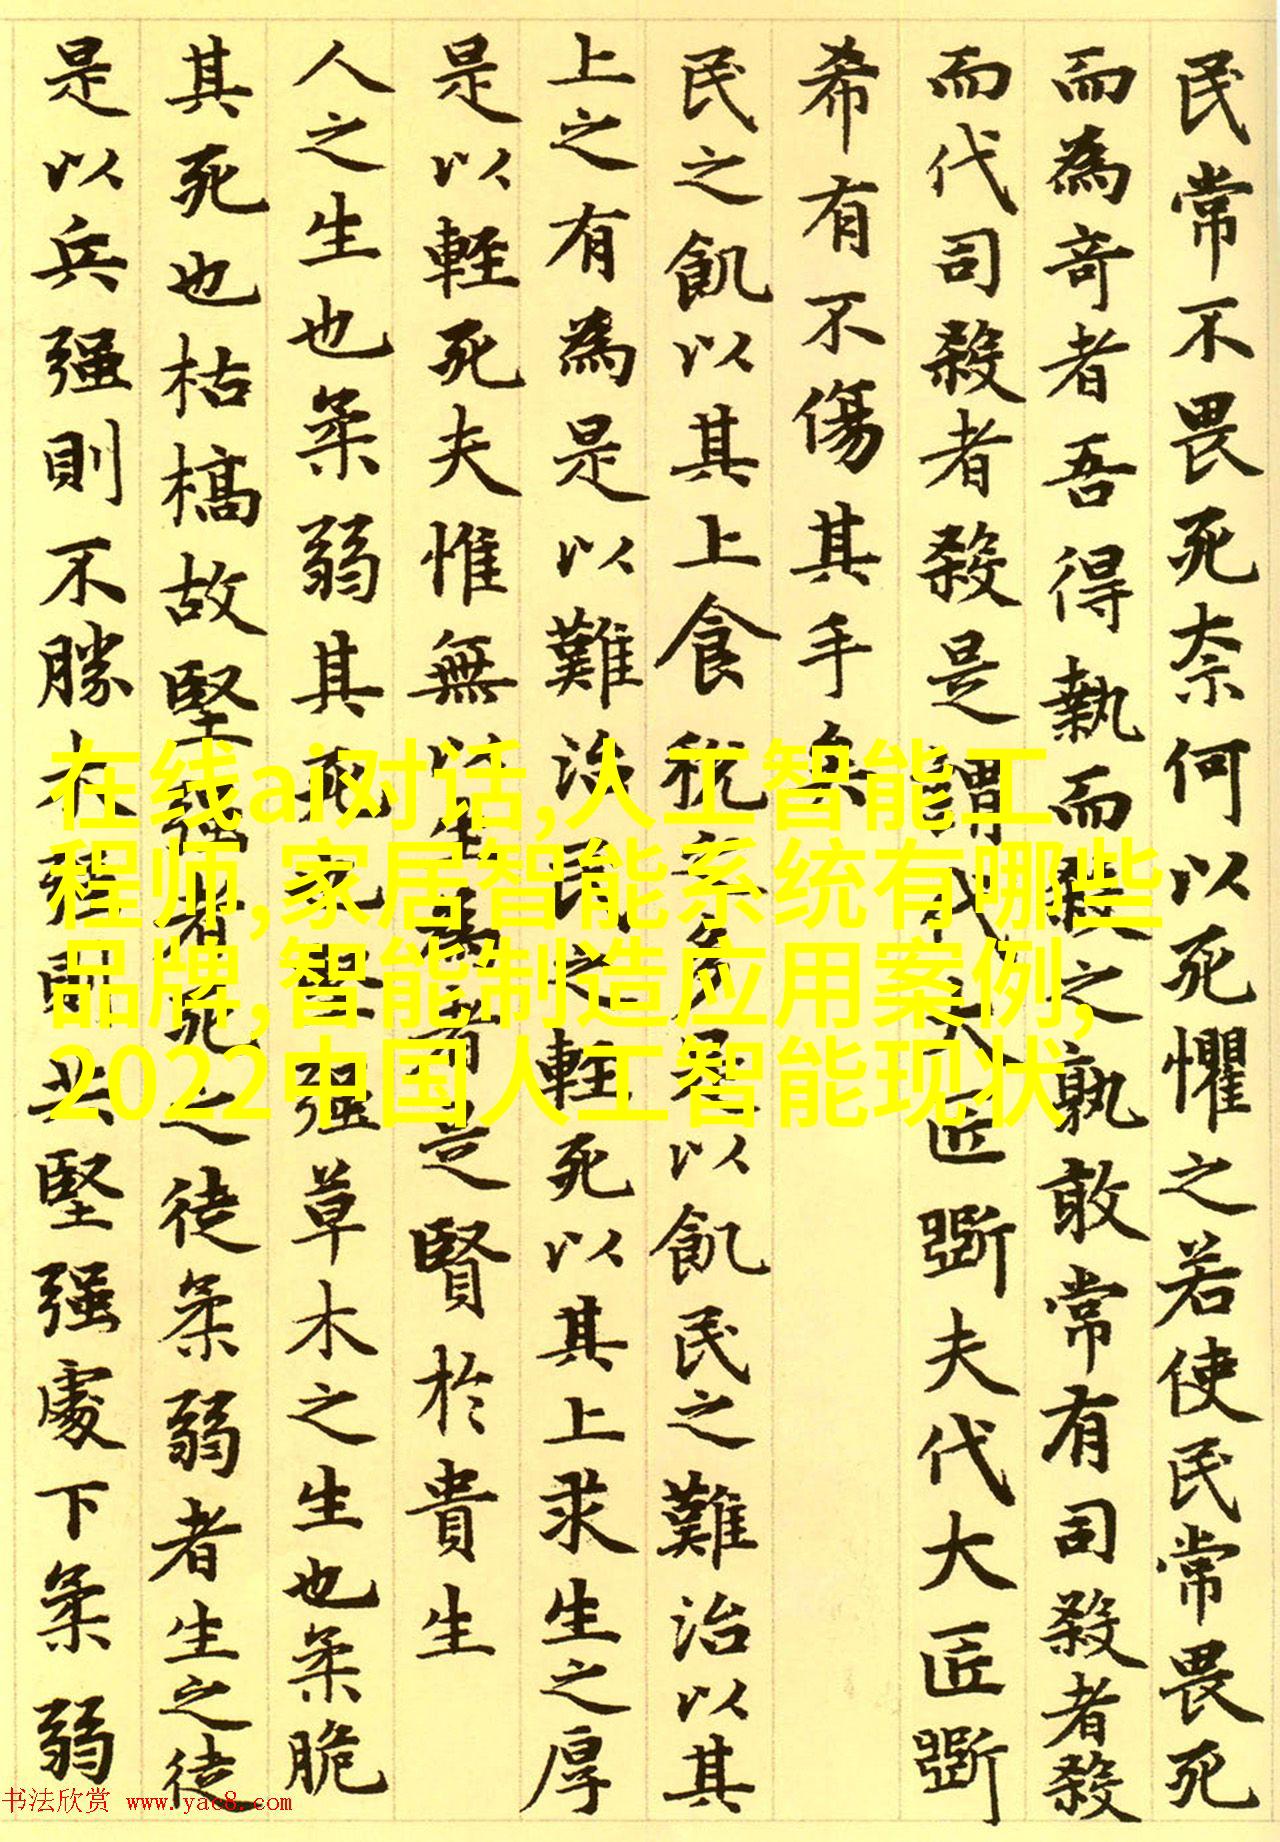 民常不畏死奈何以死懼之若使民常畏死
而為奇者吾得執而殺之孰敢常有司殺者殺
而代司殺者殺是謂代大匠斲夫代大匠斲
希有不傷其手矣
民之飢以其上食稅之多是以飢民之難治以其
上之有為是以難治民之輊死以其上求生之厚
是以輊死夫惟無以生為者是賢於貴生
人之生也柔弱其死也堅强草木之生也柔脆
其死也枯槁故堅强者死之徒柔弱者生之徒
是以兵强則不勝木强則共堅强處下柔弱
在线ai对话,人工智能工
程师,家居智能系统有哪些
品牌,智能制造应用案例,
2022中国人工智能现状
书法欣赏 www.yac8.com